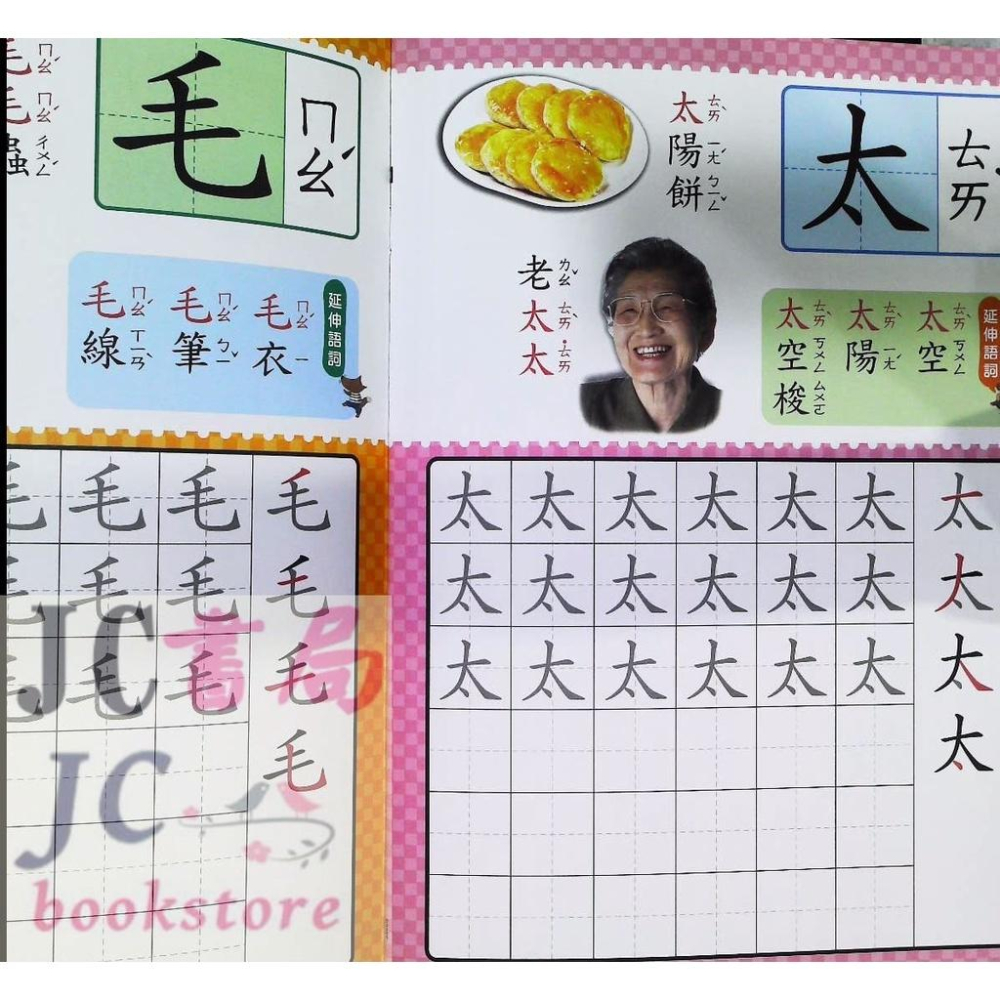 太 ㄊㄞˋ
太陽餅 ㄊㄞˋ ㄧㄤˊ ㄅㄧㄥˇ
老太太 ㄌㄠˇ ㄊㄞˋ ˙ㄊㄞ
延伸語詞
太空 ㄊㄞˋ ㄎㄨㄥ
太陽 ㄊㄞˋ ㄧㄤˊ
太空梭 ㄊㄞˋ ㄎㄨㄥ ㄙㄨㄛ
太太太太太太太
太太太太太太太
太太太太太太太
太
毛 ㄇㄠˊ
毛毛蟲 ㄇㄠˊ ㄇㄠˊ ㄔㄨㄥˊ
延伸語詞
毛衣 ㄇㄠˊ ㄧ
毛筆 ㄇㄠˊ ㄅㄧˇ
毛線 ㄇㄠˊ ㄒㄧㄢˋ
毛毛毛毛
毛毛毛毛
毛毛毛毛
毛
JC書局
JC
bookstore